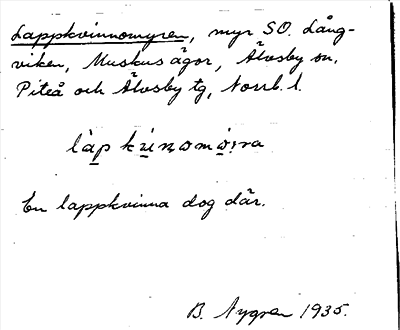 Lappkvinnomyren, myr SO. Lång-
viken, Muskus ägor, Älvsby sn.
Piteå och Älvsby tg, Norrb. l.
En lappkvinna dog där.
B. Nygren 1935.